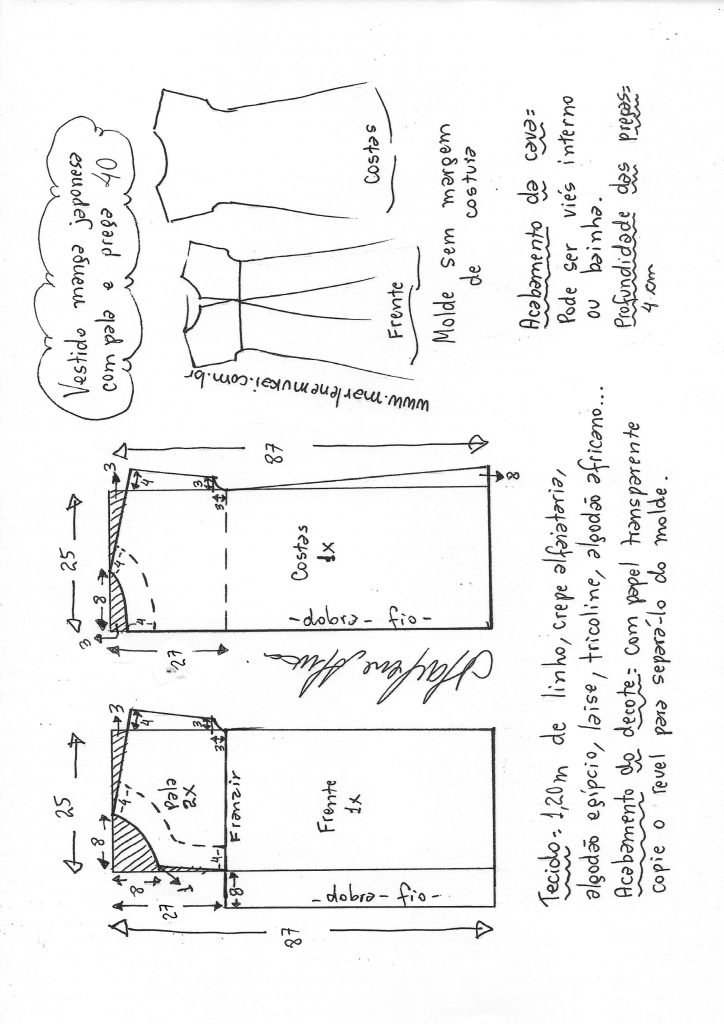 Vestido manga japonesa
com pala e prega 40
Costas
Frente
Molde sem margem
de costura
www.marlenemukai.com.br
Acabamento da cava:
Pode ser viés interno
ou bainha.
Profundidade das pregas:
4 cm
25
8
3
3
4
3
3
4
4
87
27
8
Costas
1X
-fio-dobra-
25
8
3
4
3
3
4
4
8
1
27
8
87
Pala
2X
Franzir
Frente
1X
-fio-dobra-
Tecido: 1,20m de linho, crepe alfaiataria,
algodão egípcio, laise, tricoline, algodão africano...
Acabamento do decote: Com papel transparente
copie o revel para separá-lo do molde.